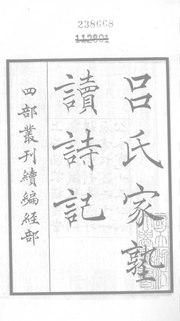 238668
112801
呂氏家塾
讀詩記
四部叢刊續編經部